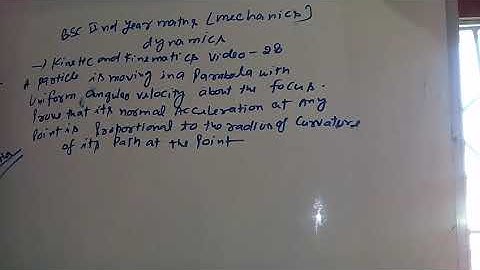 BSC IInd year maths [mechanics]
dynamics
→ Kinetic and Kinematics Video - 28
A Particle is moving in a Parabola with
Uniform angular velocity about the focus.
Prove that its normal Acceleration at any
Point is Proportional to the radius of Curvature
of its Path at the Point